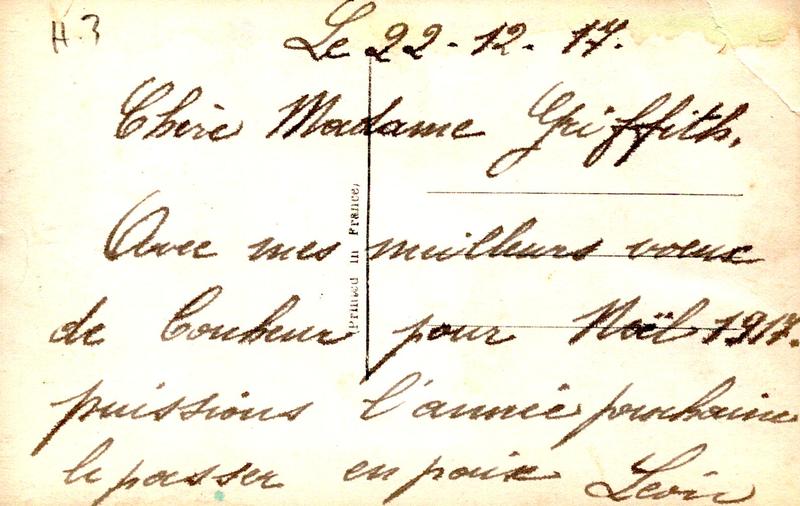 H.3
Le 22-12-17.
Chère Madame Griffith.
Avec mes meilleurs voeux
de bonheur pour Noël 1917.
puissions l'année prochaine
le passer en paix
Printed in France.